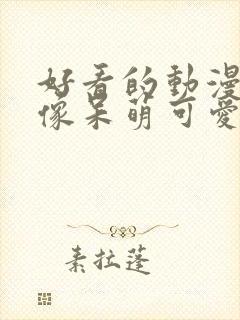 好看的動漫
像呆萌可愛
素拉蓬